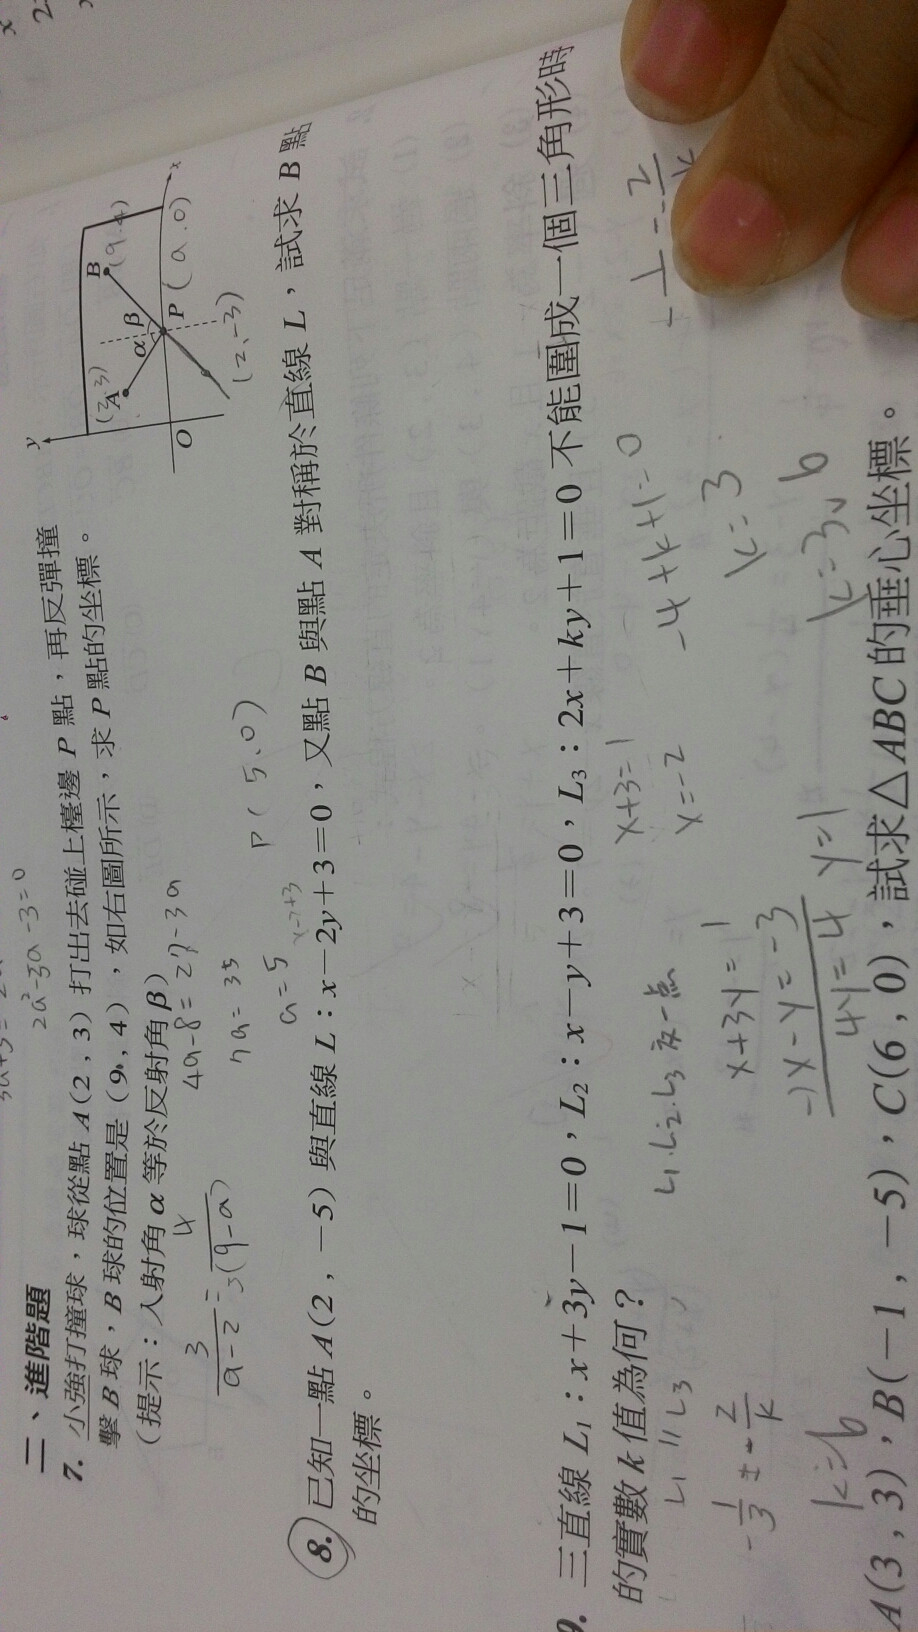 二、進階題
7. 小強打撞球，球從點 A(2, 3) 打出去碰上檯邊 P 點，再反彈撞
擊 B 球，B 球的位置是 (9, 4)，如右圖所示，求 P 點的坐標。
(提示：入射角 α 等於反射角 β)
y
A
(2,3)
α
β
B
(9,4)
O
P
(a.0)
x
(2,-3)
2a²-3a-3=0
4a-8=27-3a
7a=35
a=5
P(5.0)
8. 已知一點 A(2, -5) 與直線 L：x-2y+3=0，又點 B 與點 A 對稱於直線 L，試求 B 點
的坐標。
9. 三直線 L₁：x+3y-1=0，L₂：x-y+3=0，L₃：2x+ky+1=0 不能圍成一個三角形時
的實數 k 值為何？
L₁ // L₃
k=6
L₁.L₂.L₃ 交一點
x+3y=1
-) x-y=-3
4y=4
y=1
x+3=1
x=-2
-4+k+1=0
k=3
A(3, 3)，B(-1, -5)，C(6, 0)，試求△ABC 的垂心坐標。